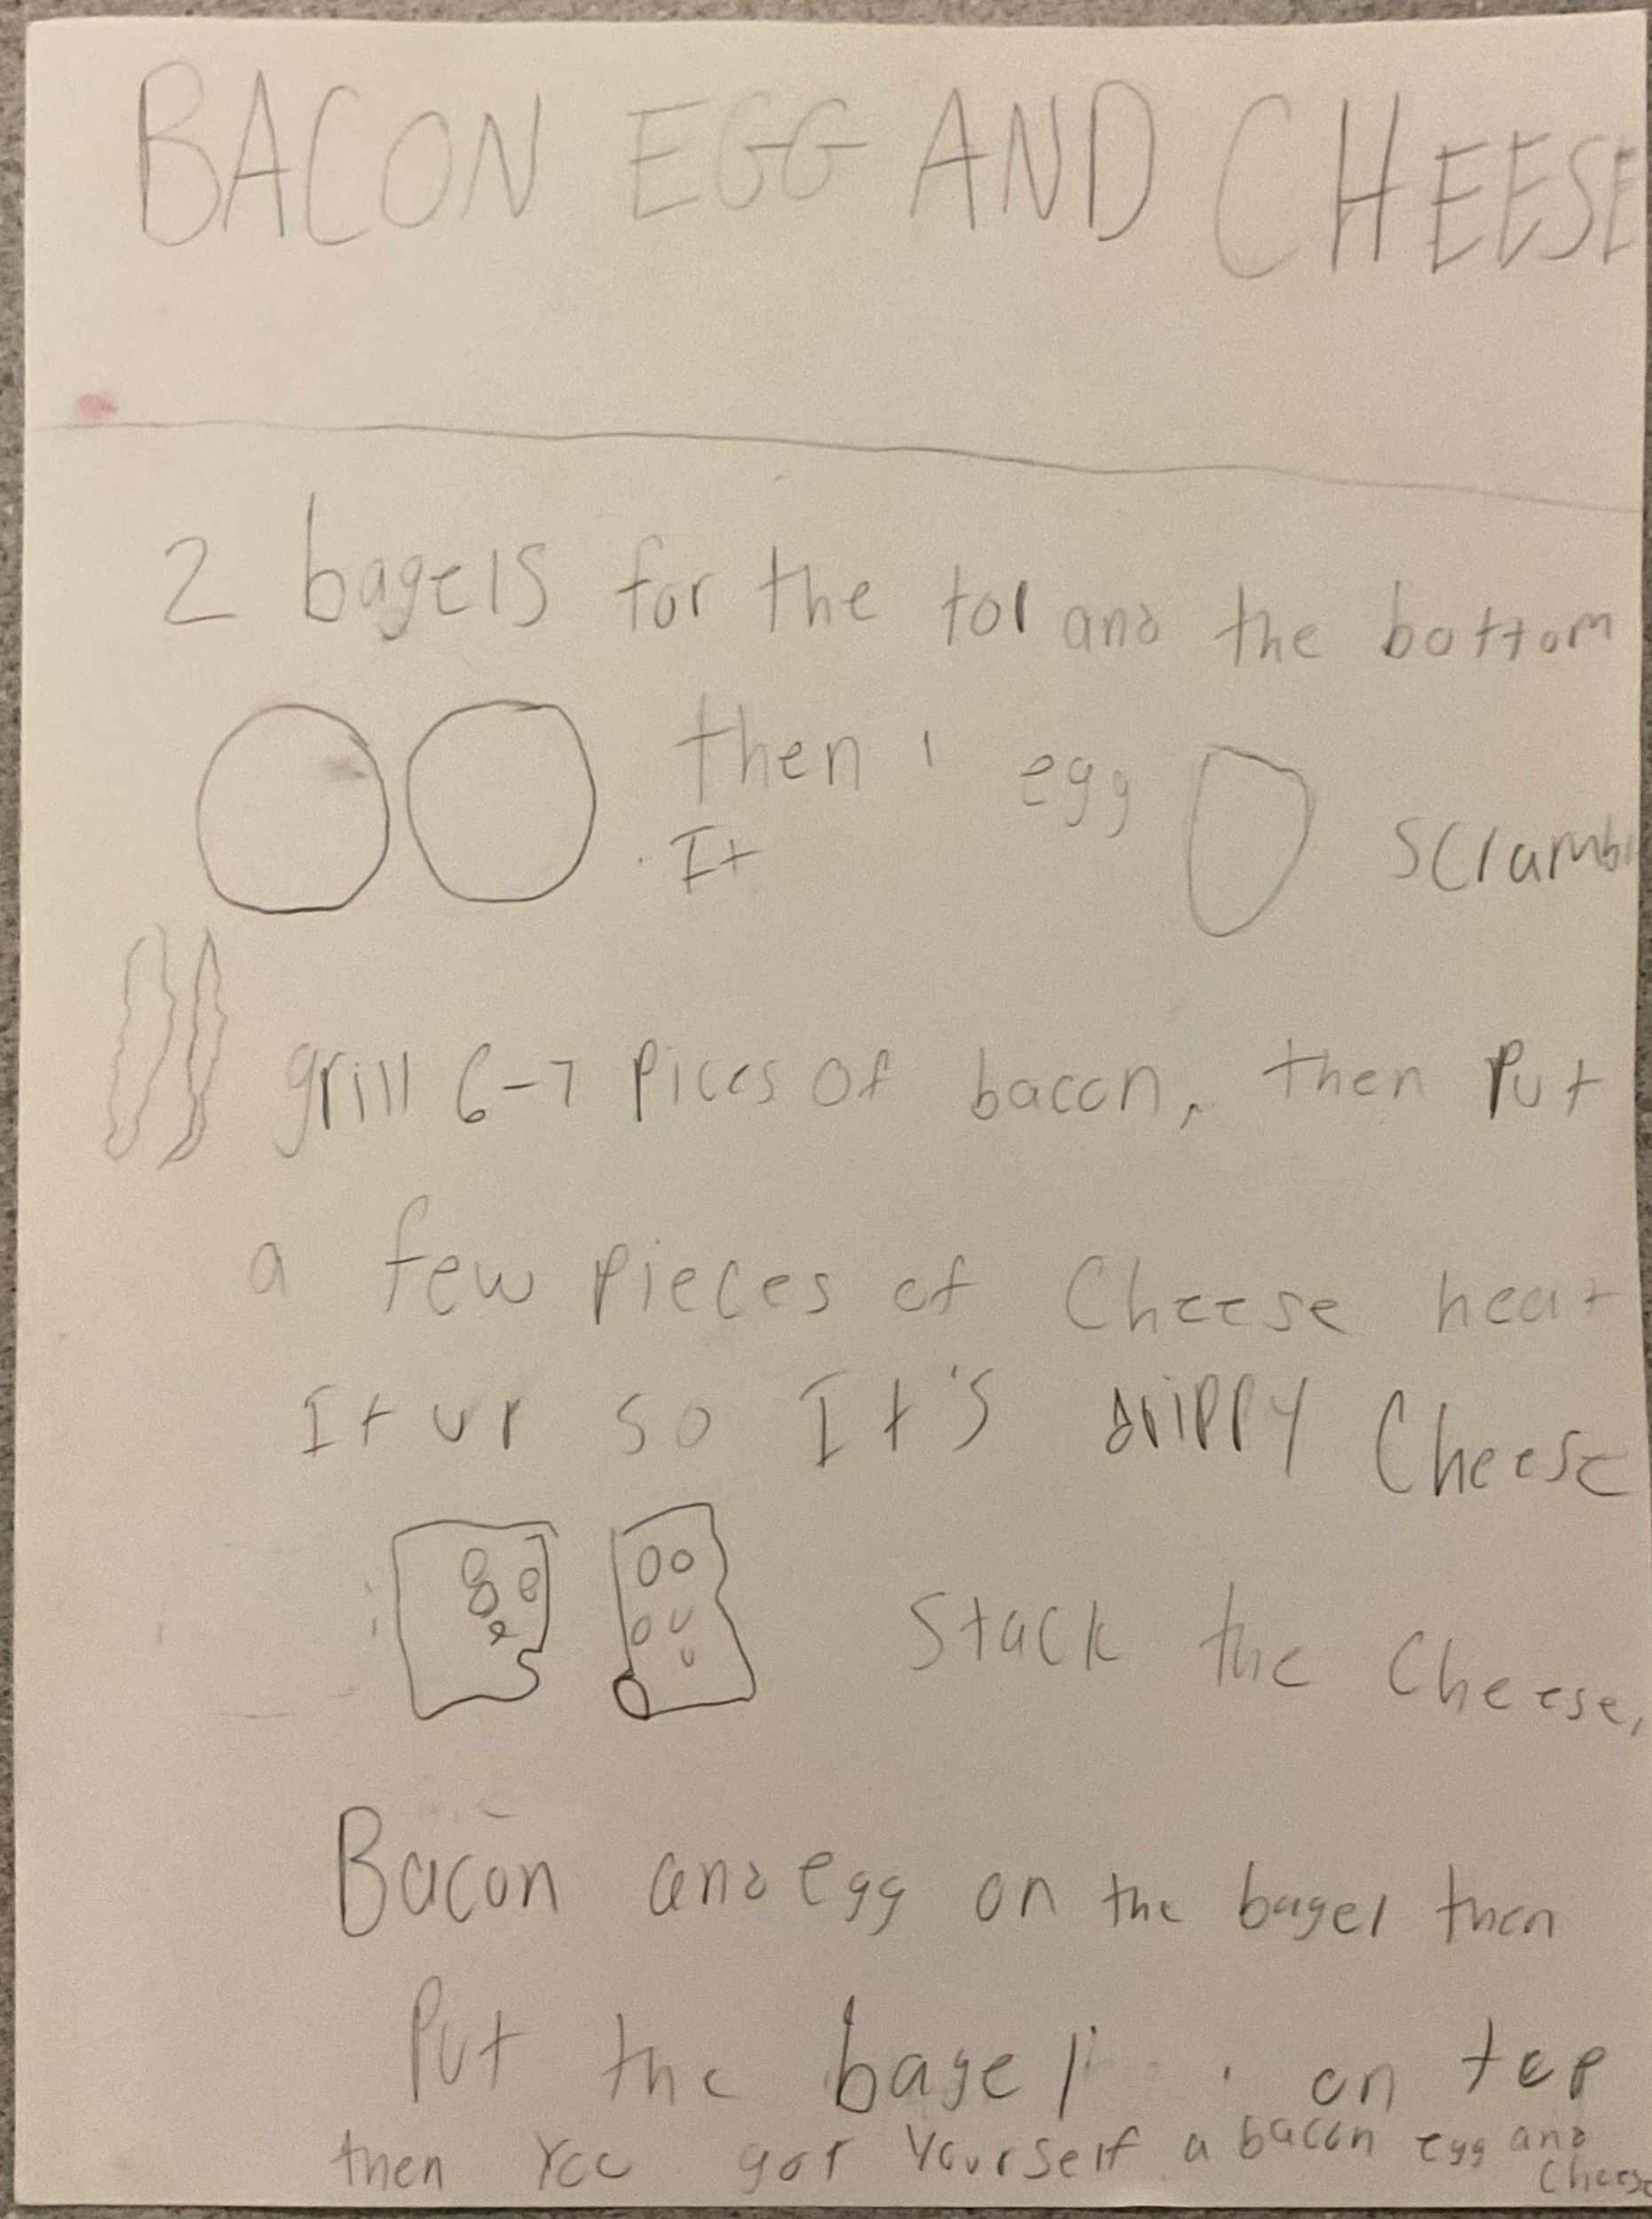 BACON EGG AND CHEESE
2 bagels for the top and the bottom
then 1 egg scramble
It
grill 6-7 pices of bacon, then put
a few pieces of Cheese heat
It up so It's drippy Cheese
Stack the Cheese,
Bacon and egg on the bagel then
Put the bagel on top
then you got yourself a bacon egg and
Cheese